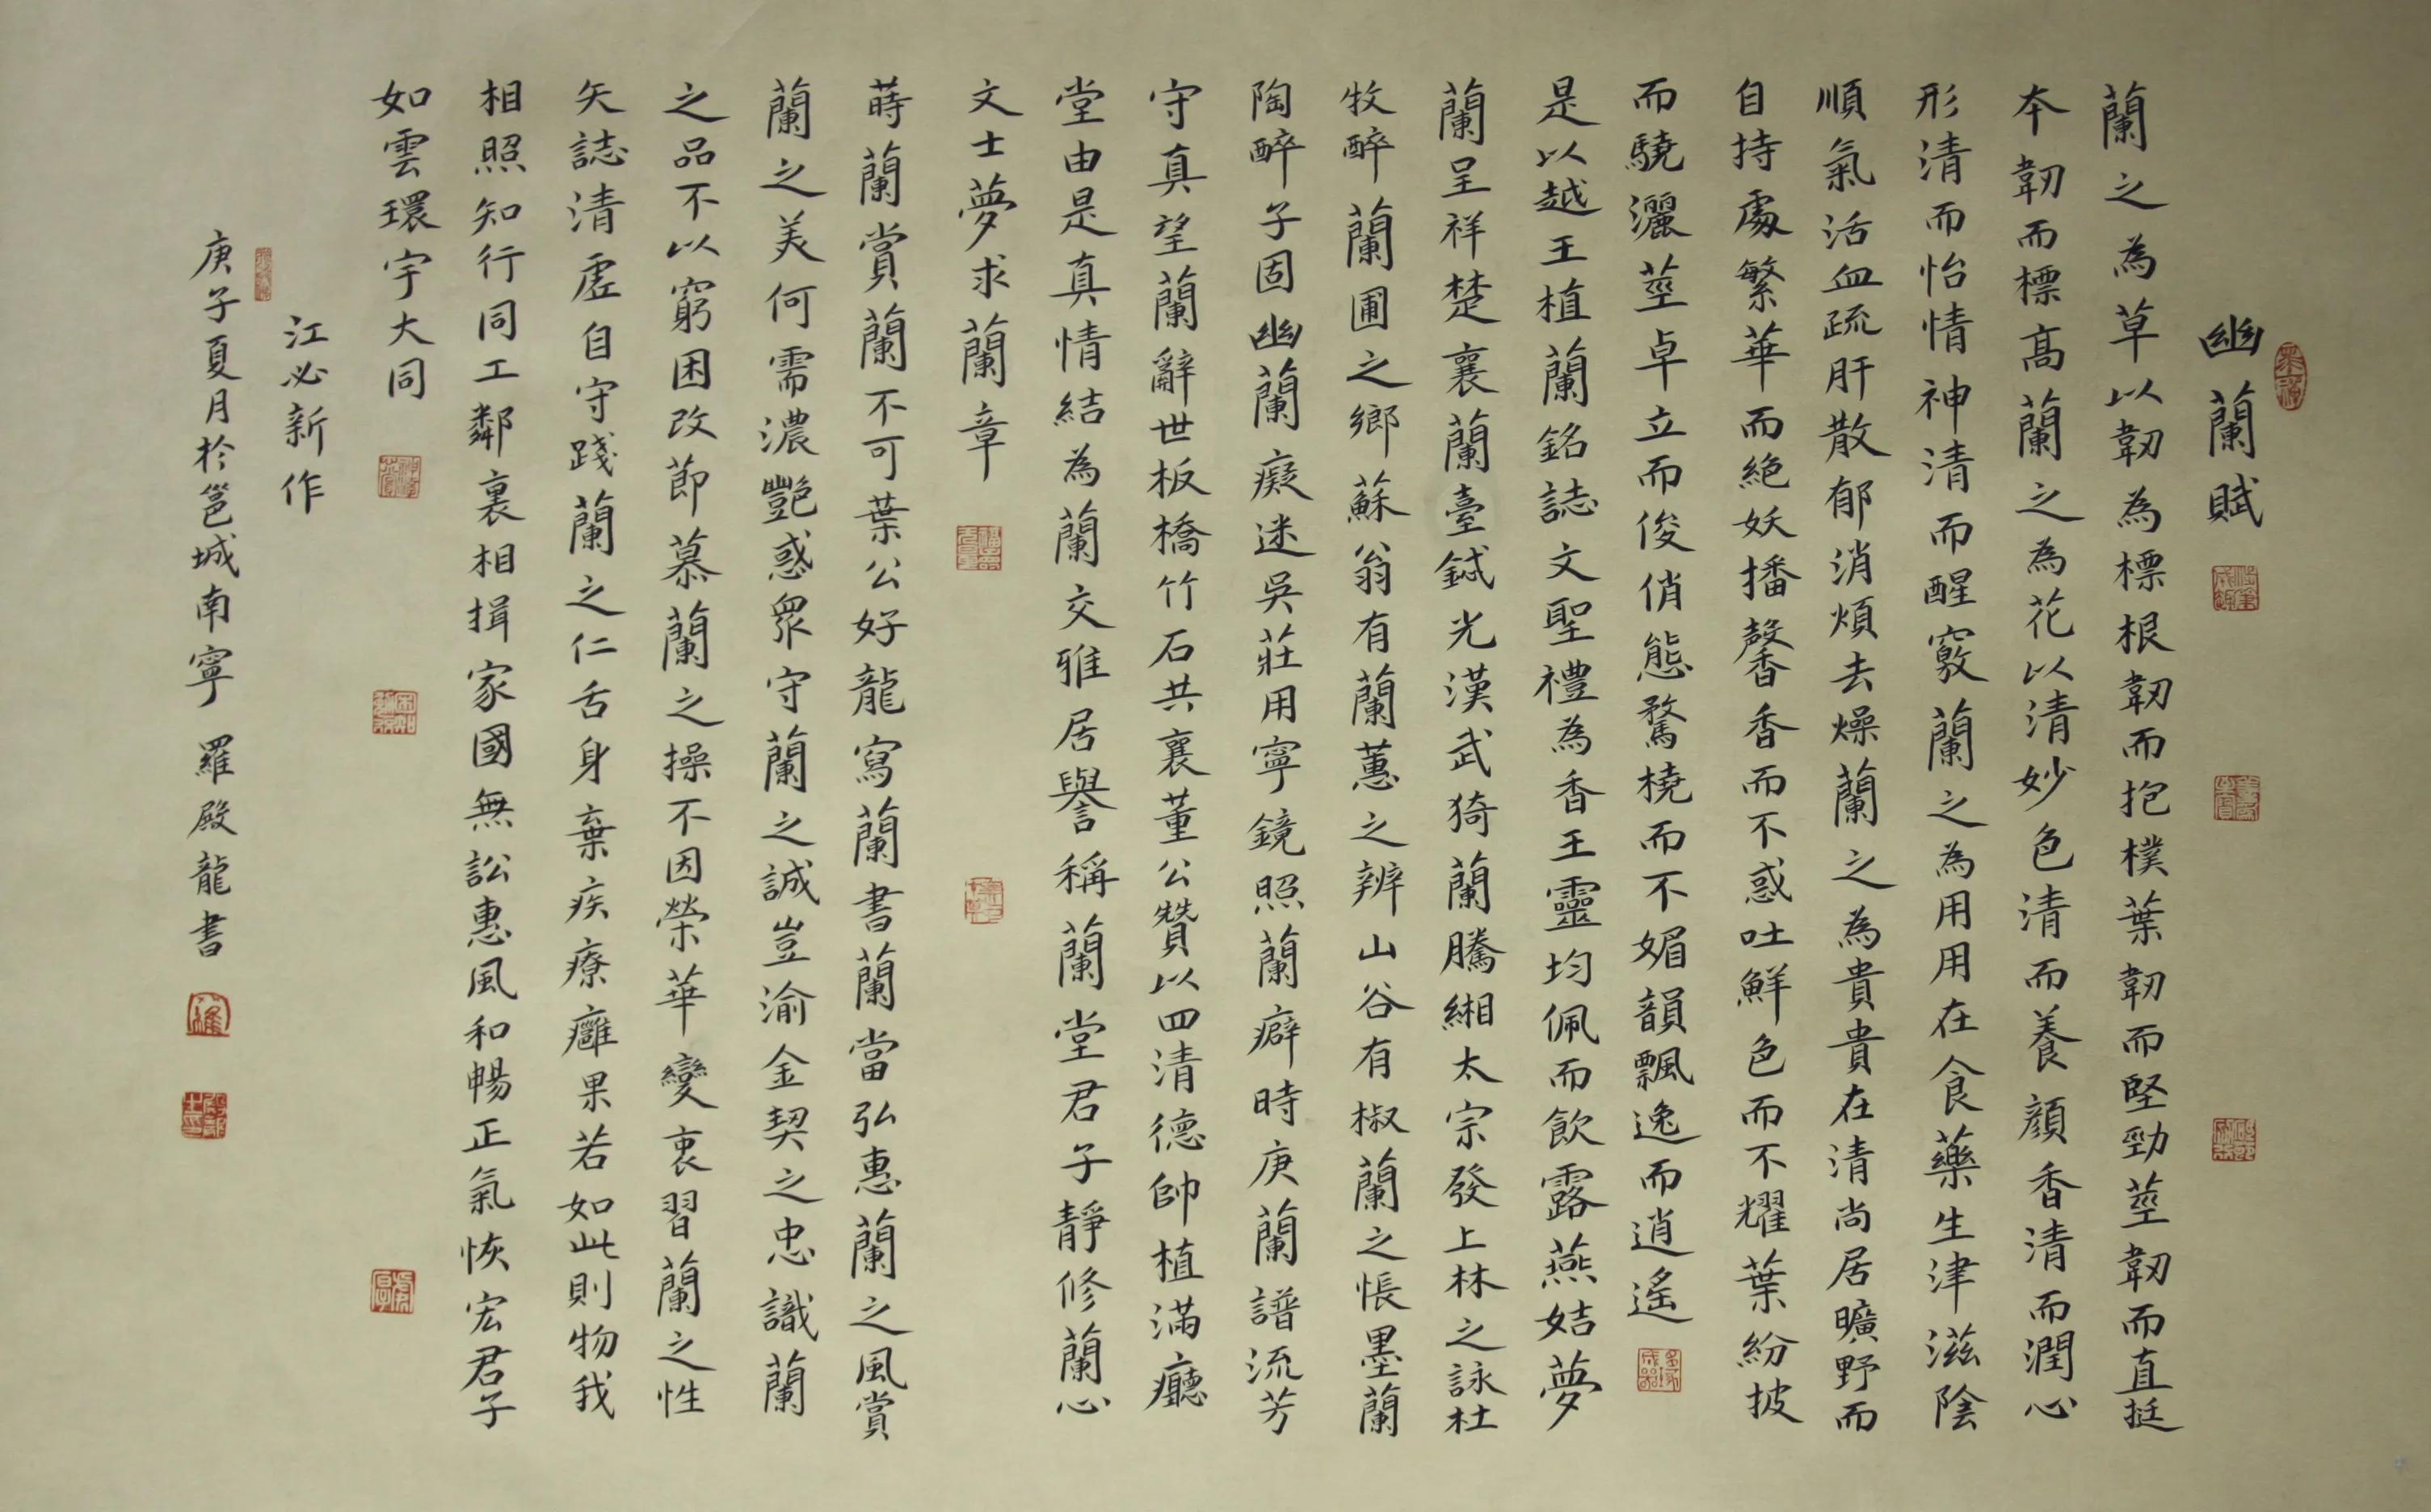 幽蘭賦
蘭之為草以韌為標根韌而抱樸葉韌而堅勁莖韌而直挺
本韌而標高蘭之為花以清妙色清而養顏香清而潤心
形清而怡情神清而醒竅蘭之為用用在食藥生津滋陰
順氣活血疏肝散郁消煩去燥蘭之為貴貴在清尚居曠野而
自持處繁華而絕妖播馨香而不惑吐鮮色而不耀葉紛披
而驍灑莖卓立而俊俏態騖橈而不媚韻飄逸而逍遙
是以越王植蘭銘誌文聖禮為香王靈均佩而飲露燕姞夢
蘭呈祥楚襄蘭臺鉽光漢武猗蘭騰緗太宗發上林之詠杜
牧醉蘭圃之鄉蘇翁有蘭蕙之辨山谷有椒蘭之悵墨蘭
陶醉子固幽蘭癡迷吳莊用寧鏡照蘭癖時庚蘭譜流芳
守真望蘭辭世板橋竹石共襄董公贊以四清德帥植滿廳
堂由是真情結為蘭交雅居譽稱蘭堂君子靜修蘭心
文士夢求蘭章
蒔蘭賞蘭不可葉公好龍寫蘭書蘭當弘惠蘭之風賞
蘭之美何需濃艷惑眾守蘭之誠豈渝金契之忠識蘭
之品不以窮困改節慕蘭之操不因榮華變衷習蘭之性
矢誌清虛自守踐蘭之仁舌身棄疾療癰果若如此則物我
相照知行同工鄰裏相揖家國無訟惠風和暢正氣恢宏君子
如雲環宇大同
江必新作
庚子夏月於邕城南寧 羅殿龍書